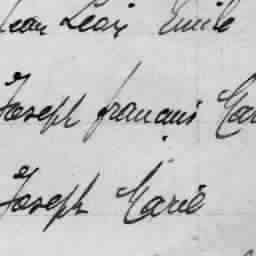 Jean Léon Emile
Joseph francois
Joseph Marie